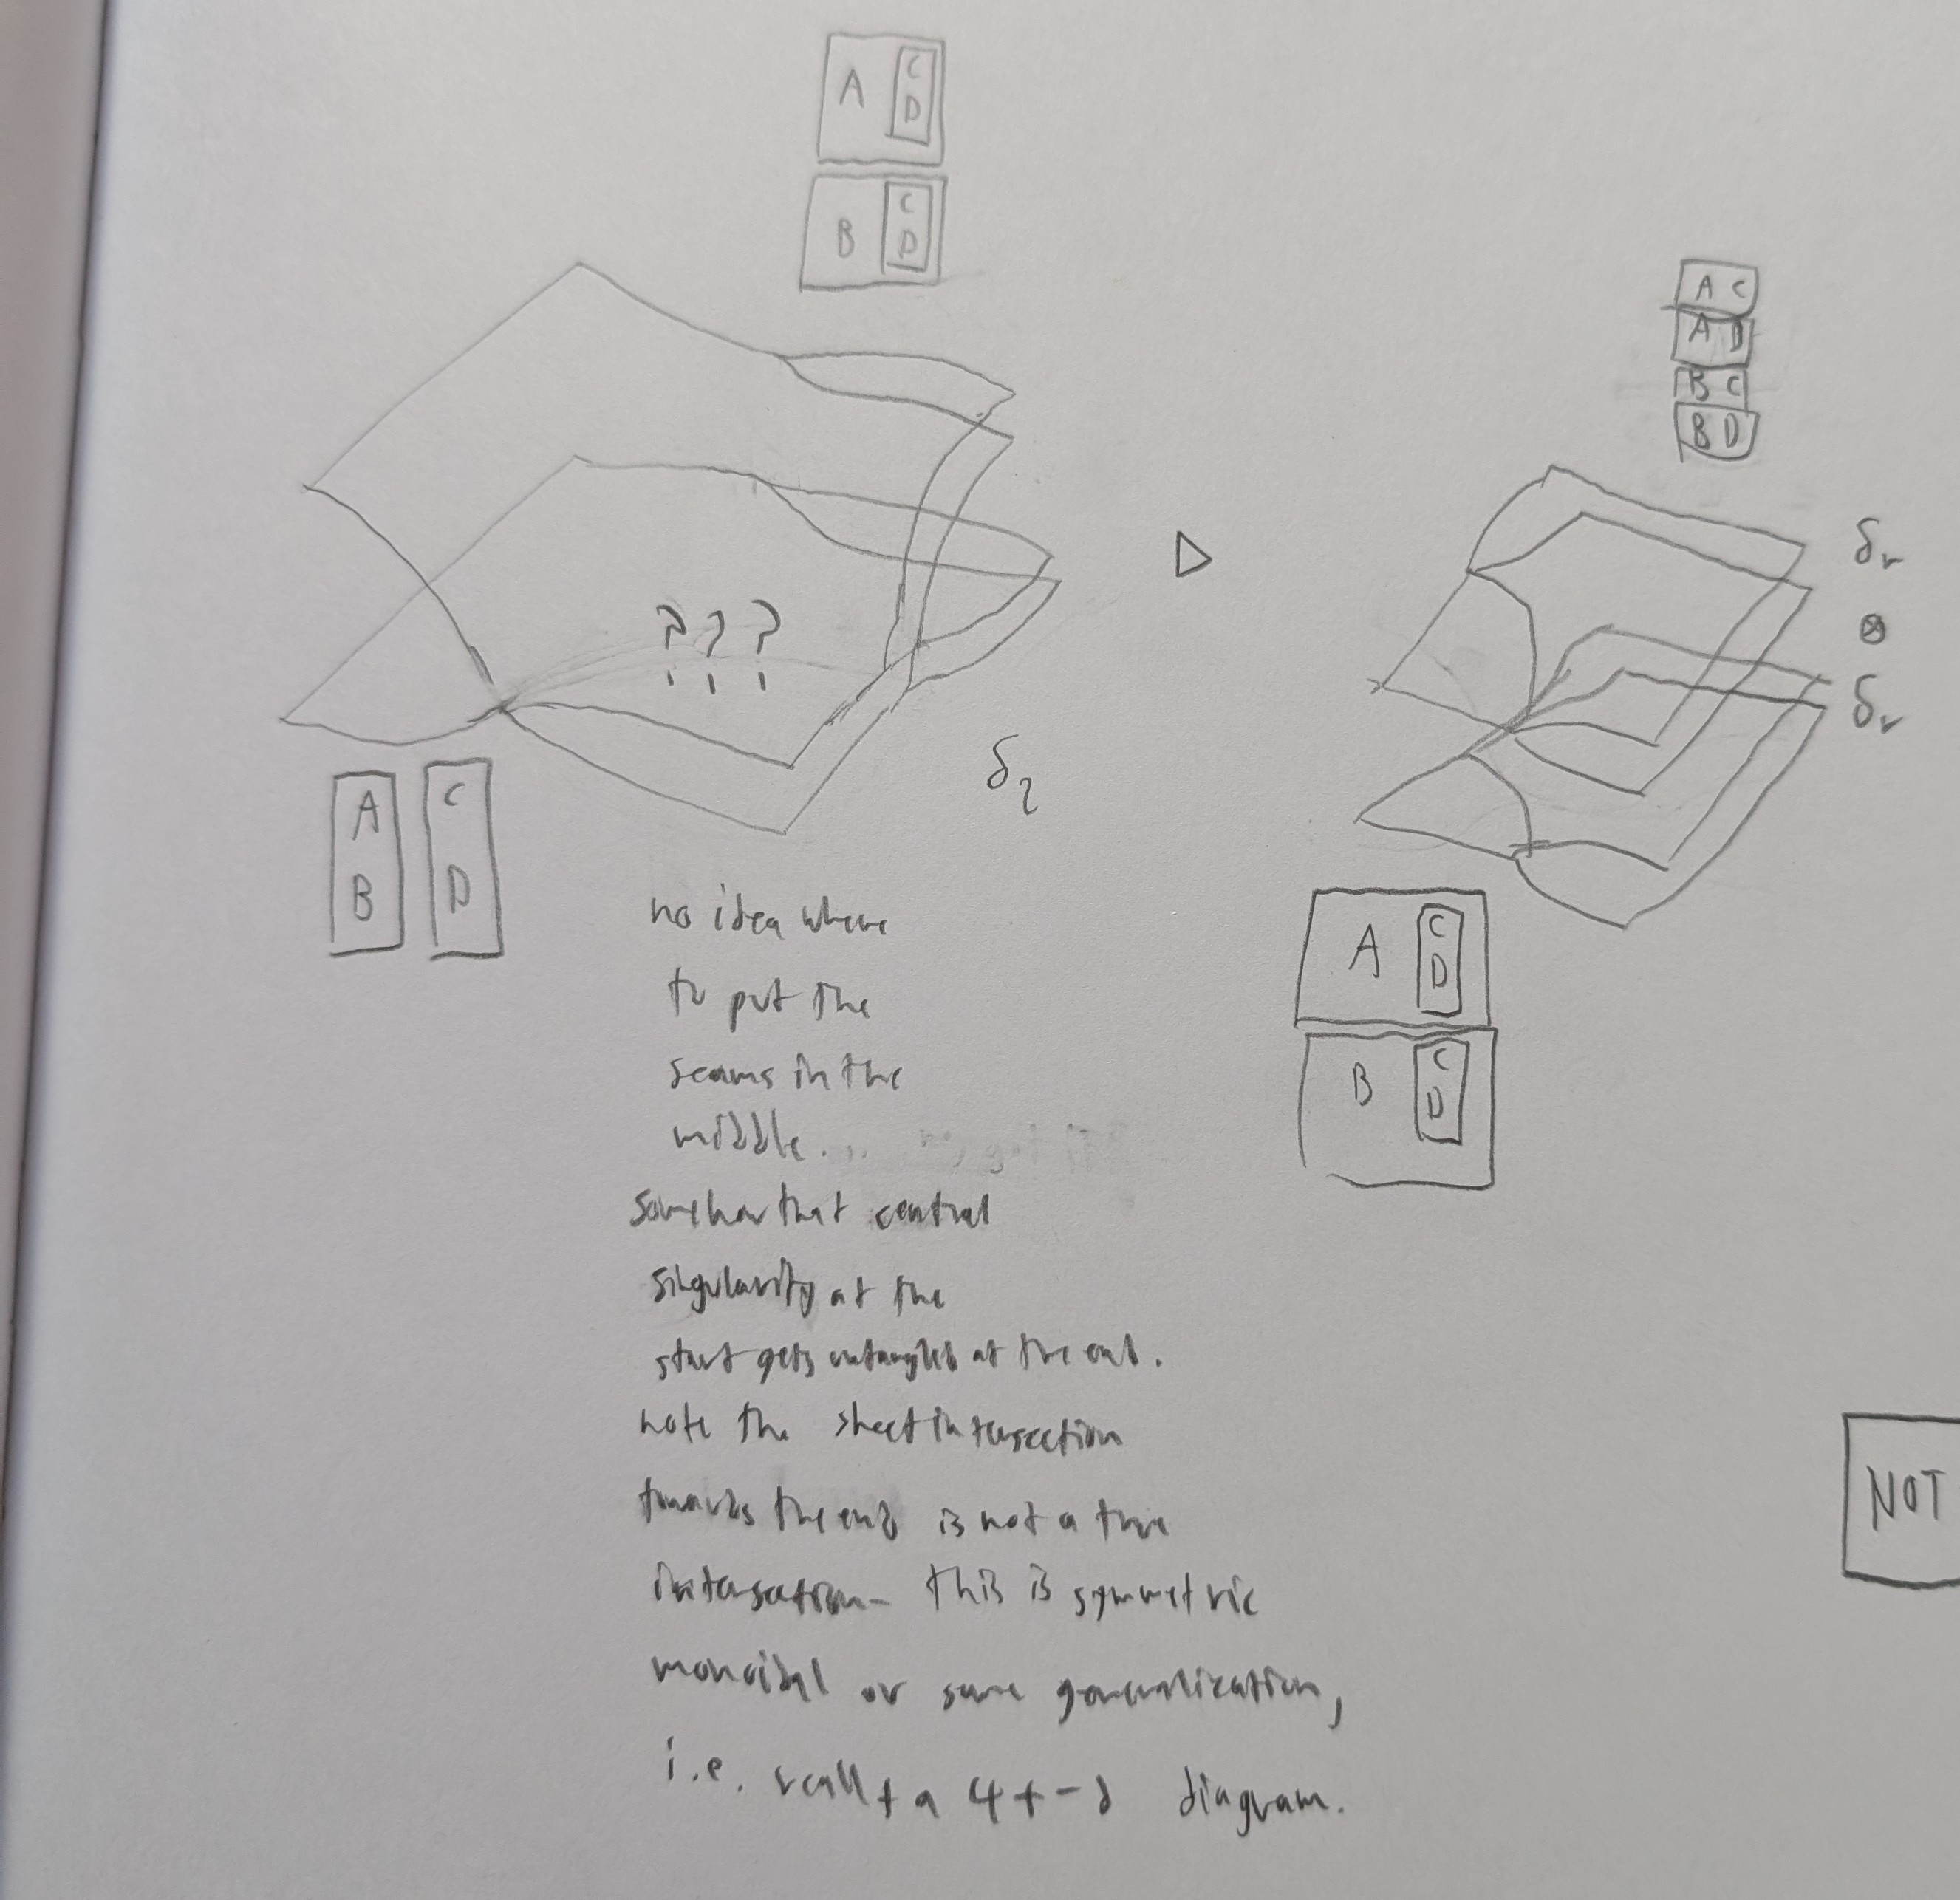 A C
D
B C
D
A C
A D
B C
B D
? ? ?
▷
δr
⊗
δr
δl
A C
B D
A C
D
B C
D
no idea where
to put the
seams in the
middle.
Somehow that central
singularity at the
start gets untangled at the end.
note the sheet intersection
towards the end is not a true
intersection- this is symmetric
monoidal or some generalization,
i.e. a 4+-d diagram.
NOT